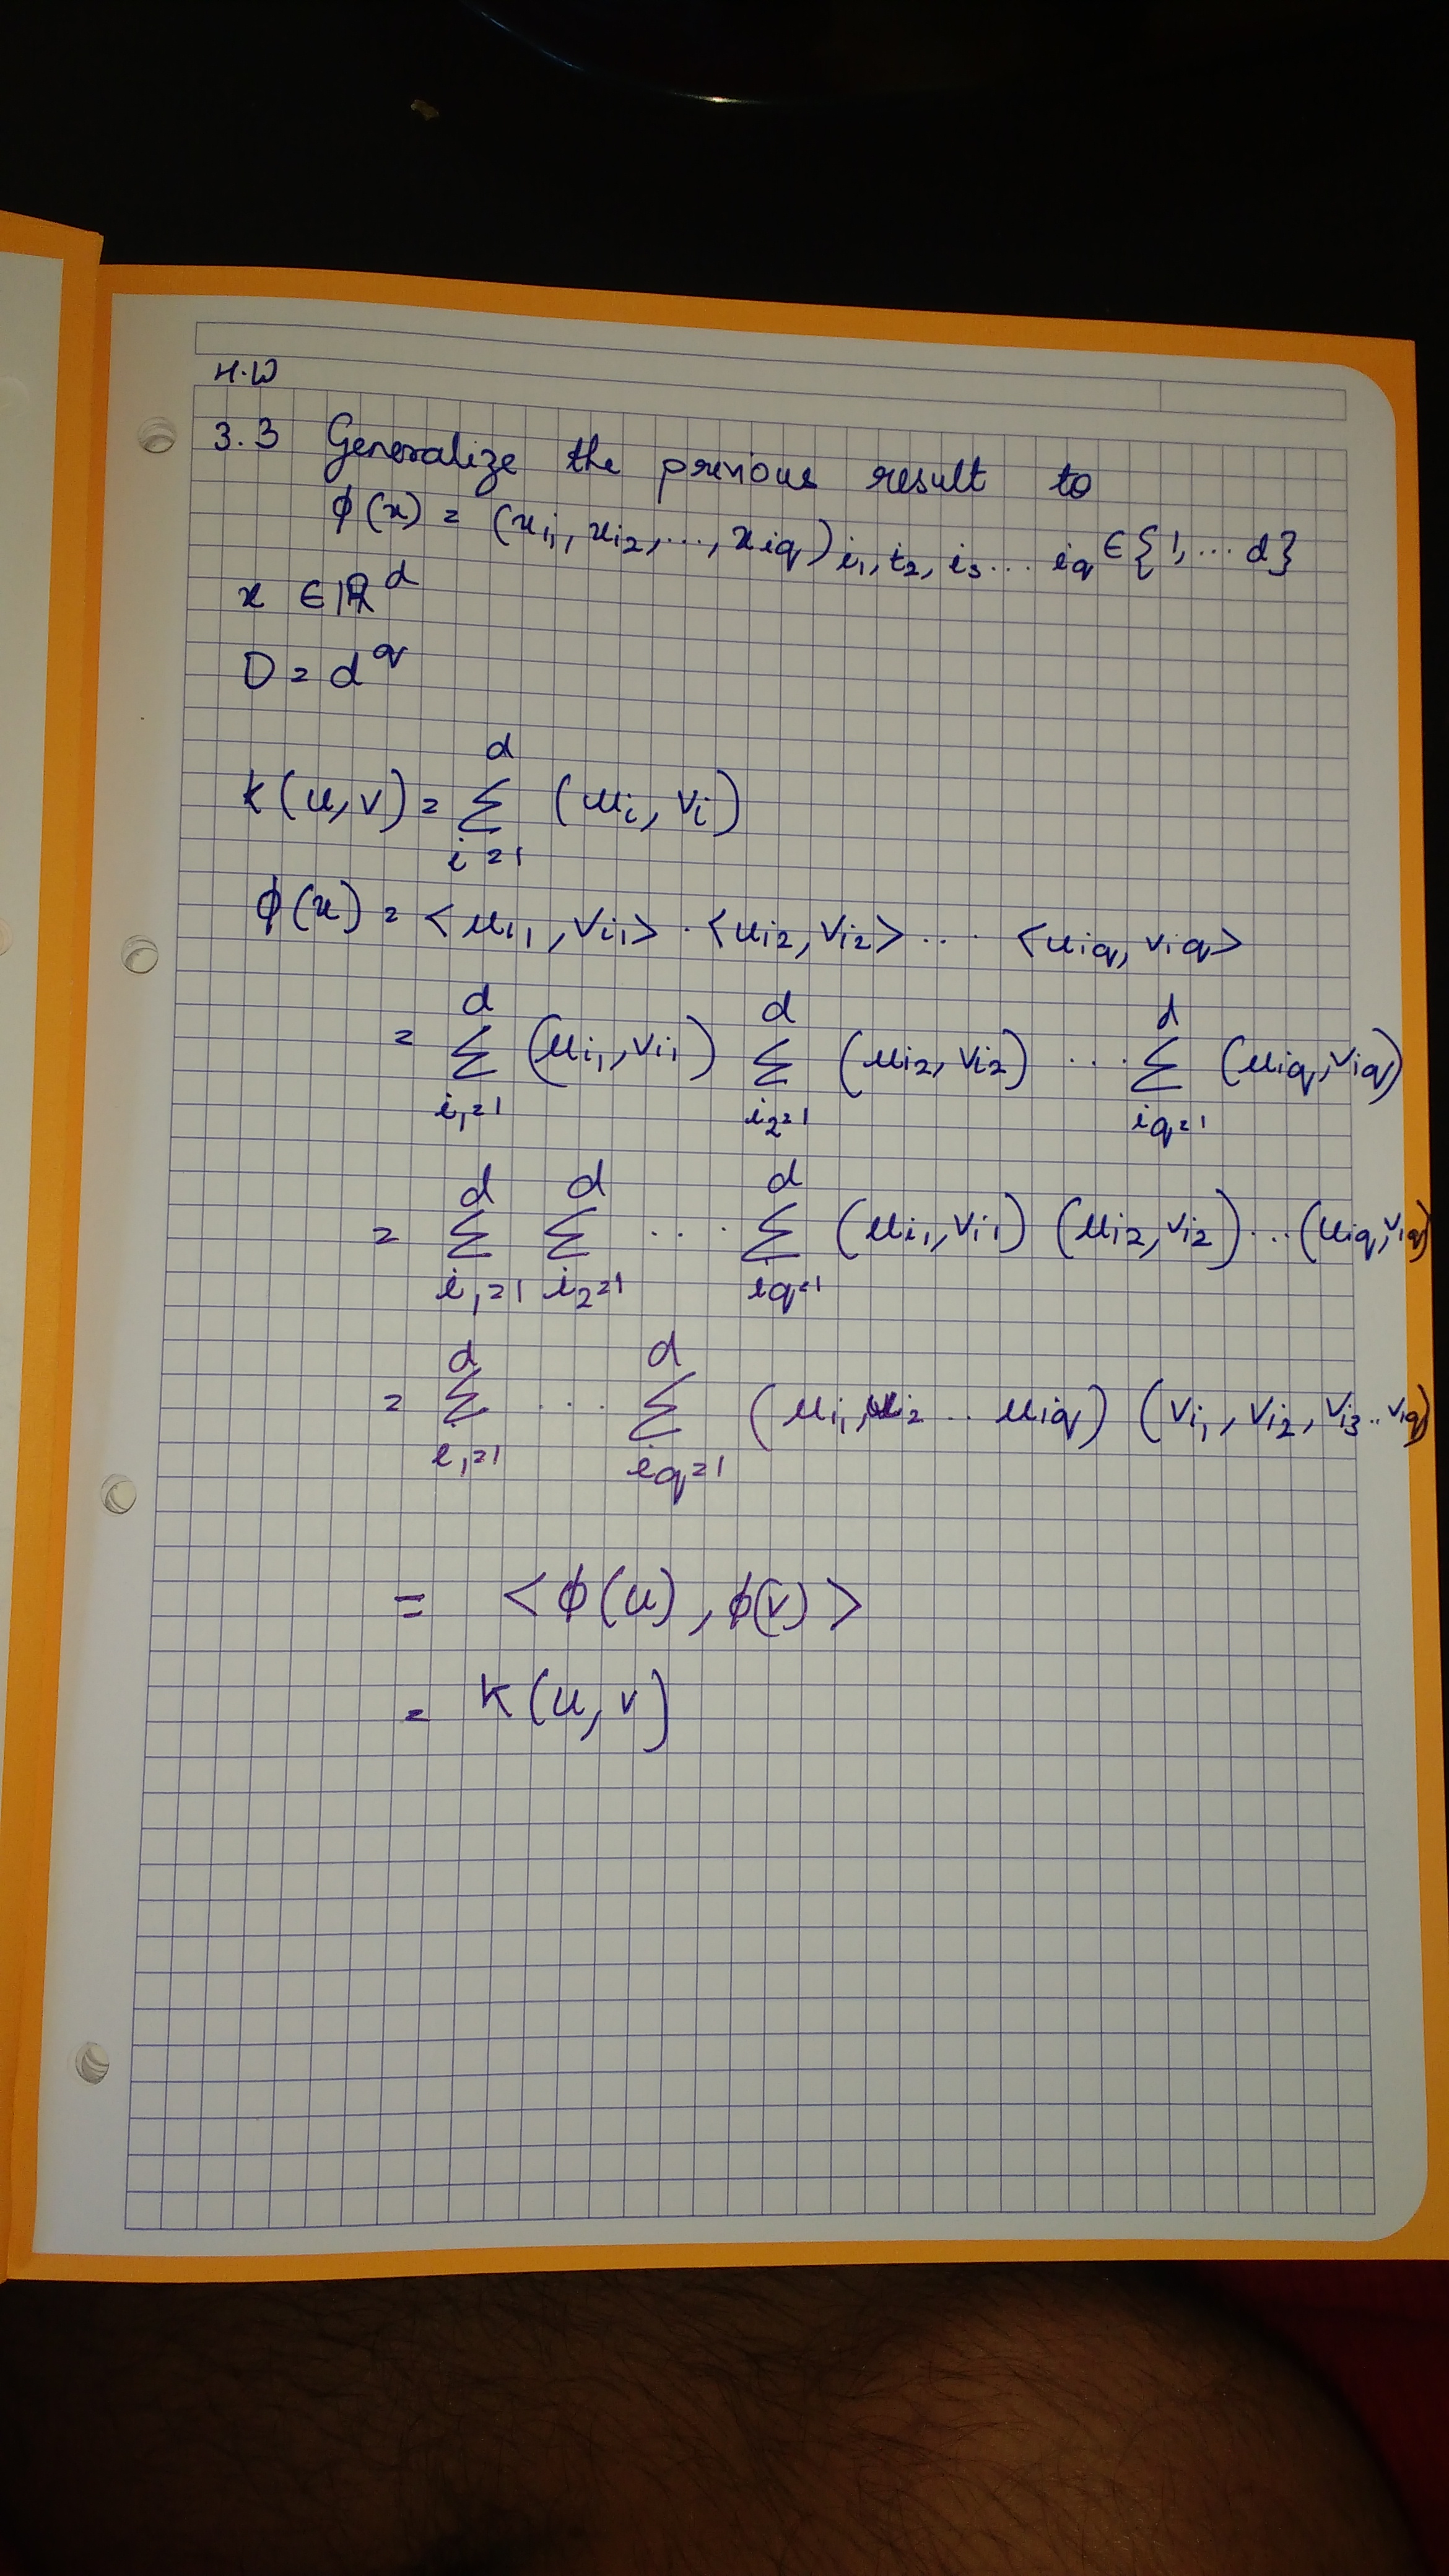 H.W
3.3 Generalize the previous result to
ϕ(x) = (x_{i1}, x_{i2}, ..., x_{iq})_{i1, i2, i3 ... iq} ∈ {1, ... d}
x ∈ ℝ^d
D = d^q
k(u, v) = ∑_{i=1}^{d} (u_i, v_i)
ϕ(x) = <u_{i1}, v_{i1}> · <u_{i2}, v_{i2}> ... <u_{iq}, v_{iq}>
= ∑_{i1=1}^{d} (u_{i1}, v_{i1}) ∑_{i2=1}^{d} (u_{i2}, v_{i2}) ... ∑_{iq=1}^{d} (u_{iq}, v_{iq})
= ∑_{i1=1}^{d} ∑_{i2=1}^{d} ... ∑_{iq=1}^{d} (u_{i1}, v_{i1}) (u_{i2}, v_{i2}) ... (u_{iq}, v_{iq})
= ∑_{i1=1}^{d} ... ∑_{iq=1}^{d} (u_{i1}, u_{i2} ... u_{iq}) (v_{i1}, v_{i2}, v_{i3} .. v_{iq})
= <ϕ(u), ϕ(v)>
= k(u, v)